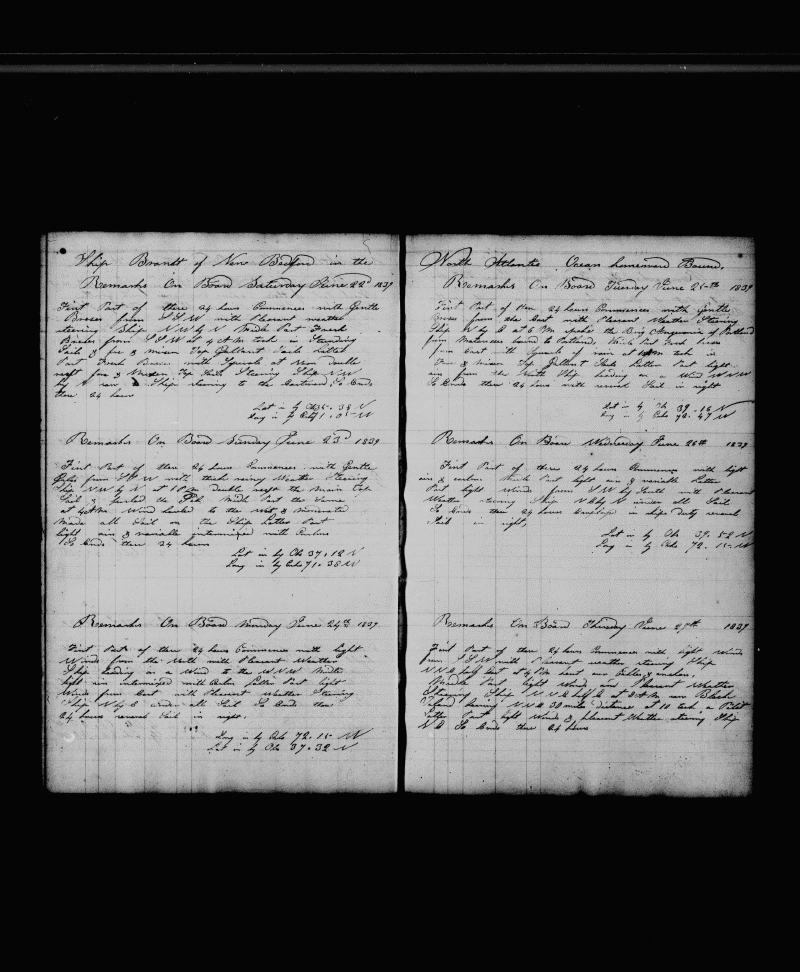 Ship Brandt of New Bedford in the
Remarks On Board Saturday June 22d 1839
First Part of these 24 hours Commences with Gentle
Breses from SSW with Pleasant weather
steering Ship NW by N Midle Part Fresh
Breses from SSW at 4 AM tack in Steading
Sails & fore & mizen Top Gallant Sails Latter
Part Fresh Breses with Squals at Noon double
reeft fore & Mizen Top Sails Steering Ship NW
by N saw a Ship steering to the Eastward So Ends
these 24 hours
Lat in by Obs 35.34 N
Long in by 71.05 W
Remarks On Board Sunday June 23d 1839
First Part of these 24 hours Commences with Gentle
Gales from SSW with thick rainy Weather Steering
Ship NW by N at 1 PM double reeft the Main Top
Sail & furled the Jib Midle Part the Same
at 4 AM Wind hauled to the West & moderated
Made all Sail on the Ship Latter Part
light airs & variable intermixed with Calms
So Ends these 24 hours
Lat in by Obs 37.12 N
Long in by 71.38 W
Remarks On Board Monday June 24th 1839
First Part of these 24 hours Commences with light
Winds from the North with Pleasant Weather
Ship heading on a Wind to the WNW Midle
light airs intermixed with Calm Latter Part light
Winds from East with Pleasant Weather Steering
Ship N by E under all Sail So Ends these
24 hours several Sail in sight
Long in by 72.15 W
Lat in by Obs 37.32 N
North Atlantic Ocean homeward Bound.
Remarks On Board Tuesday June 25th 1839
First Part of these 24 hours Commences with Gentle
Breses from the East with Pleasant Weather Steering
Ship N by E at 5 PM spoke the Brig of Portland
from Matanzas bound to Portland Midle Part Fresh breses
from East with Squals of rain at tack in
Fore & Mizen Top Gallant Sails Latter Part light
airs from the North Ship heading on a Wind WNW
So Ends these 24 hours with several Sail in sight
Lat in by Ob 39.16 N
Long in by 72.47 W
Remarks On Board Wednesday June 26th 1839
First Part of these 24 hours Commences with light
airs & calms Midle Part light airs & variable Latter
Part light Winds from SW by South with Pleasant
Weather steering Ship N by N under all Sail
So Ends these 24 hours Employed in ships Duty several
Sail in sight,
Lat in by Ob 39.52 N
Long in by 72.15 W
Remarks On Board Thursday June 27th 1839
First Part of these 24 hours Commences with light Winds
from SSW with Pleasant weather steering Ship
NNE half East at 4 PM bent our Cables & anchors,
Middle Part light Winds and Pleasant Weather
Steering Ship NNE half E at 8 AM saw Block
Island bearing NNE 30 miles distance at 10 took a Pilot
latter Part light Winds & pleasant Weather steering Ship
NE So Ends these 24 hours